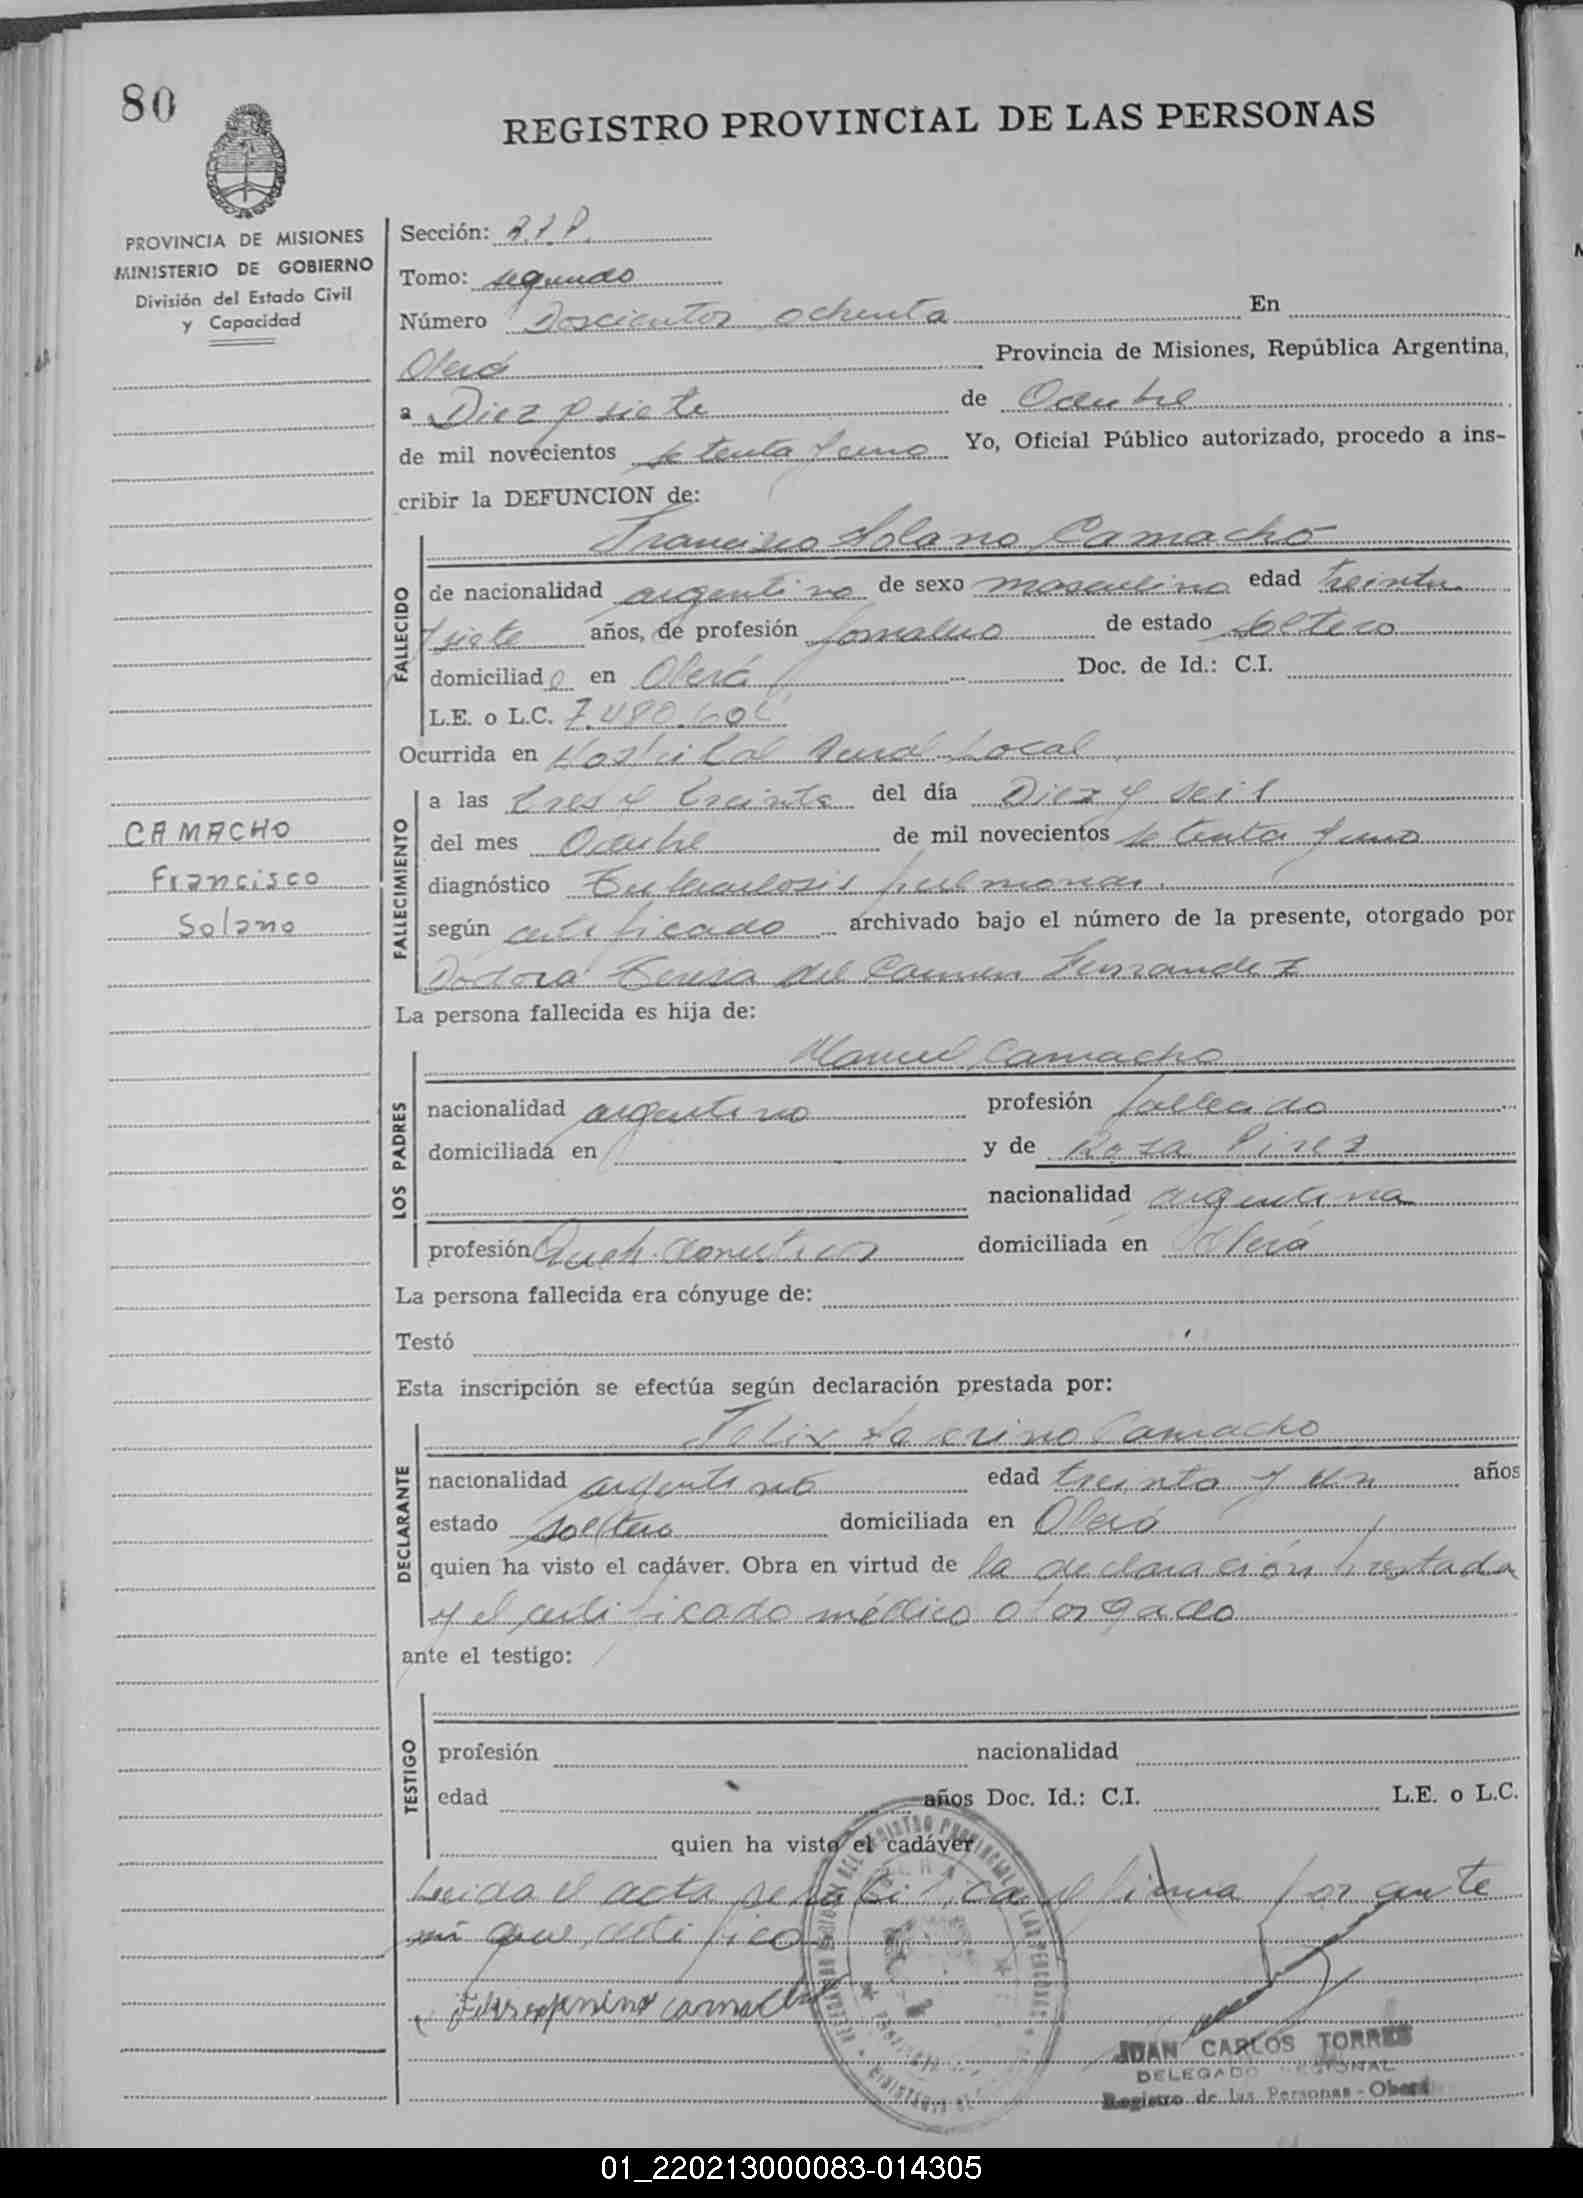 80
REGISTRO PROVINCIAL DE LAS PERSONAS
PROVINCIA DE MISIONES
MINISTERIO DE GOBIERNO
División del Estado Civil
y Capacidad
CAMACHO
Francisco
Solano
Sección:
Tomo: segundo
Número Doscientos ochenta En
Oberá Provincia de Misiones, República Argentina,
a Diez y siete de Octubre
de mil novecientos setenta y uno Yo, Oficial Público autorizado, procedo a ins-
cribir la DEFUNCION de:
Francisco Solano Camacho
FALLECIDO
de nacionalidad argentino de sexo masculino edad treinta
y siete años, de profesión jornalero de estado soltero
domiciliado en Oberá Doc. de Id.: C.I.
L.E. o L.C.
Ocurrida en Hospital Rural Local
FALLECIMIENTO
a las tres y treinta del día Diez y seis
del mes Octubre de mil novecientos setenta y uno
diagnóstico Tuberculosis pulmonar
según certificado archivado bajo el número de la presente, otorgado por
Doctora Teresa del Carmen Fernandez
La persona fallecida es hija de:
LOS PADRES
Manuel Camacho
nacionalidad argentino profesión fallecido
domiciliada en y de Rosa Pirez
nacionalidad argentina
profesión Queh. domesticos domiciliada en Oberá
La persona fallecida era cónyuge de:
Testó
Esta inscripción se efectúa según declaración prestada por:
DECLARANTE
Felix Camacho
nacionalidad argentino edad treinta y un años
estado soltero domiciliada en Oberá
quien ha visto el cadáver. Obra en virtud de la declaración prestada
y el certificado médico otorgado
ante el testigo:
TESTIGO
profesión nacionalidad
edad años Doc. Id.: C.I. L.E. o L.C.
quien ha visto el cadáver
Leida el acta firma por ante
mi que certifico
camacho
JUAN CARLOS TORRES
DELEGADO REGIONAL
Registro de las Personas - Oberá
01_220213000083-014305